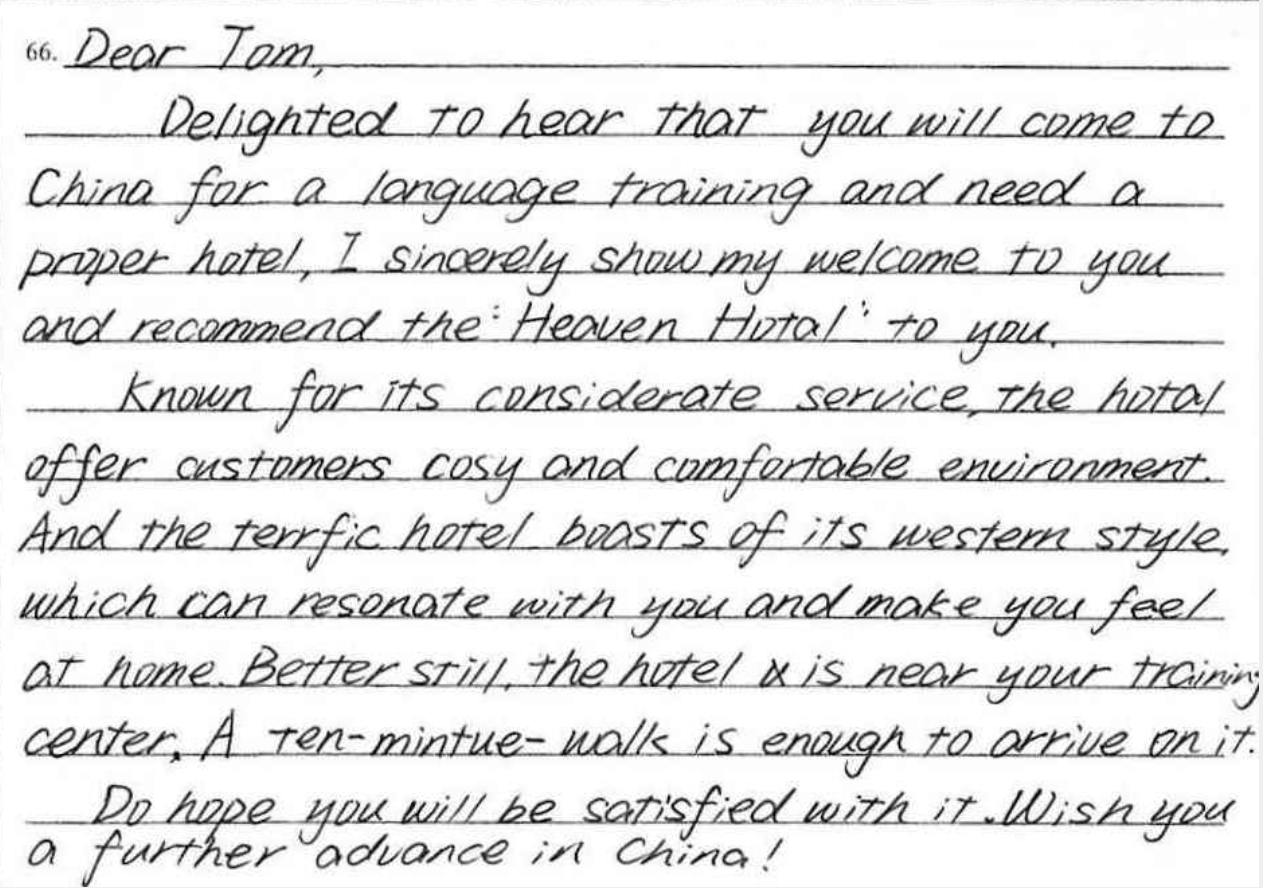 66. Dear Tom,
Delighted to hear that you will come to
China for a language training and need a
proper hotel, I sincerely show my welcome to you
and recommend the "Heaven Hotal" to you.
Known for its considerate service, the hotal
offer customers cosy and comfortable environment.
And the terrfic hotel boasts of its western style,
which can resonate with you and make you feel
at home. Better still, the hotel is near your training
center. A ten-mintue-walk is enough to arrive on it.
Do hope you will be satisfied with it. Wish you
a further advance in China!